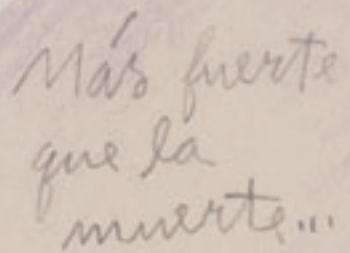 Más fuerte
que la
muerte...